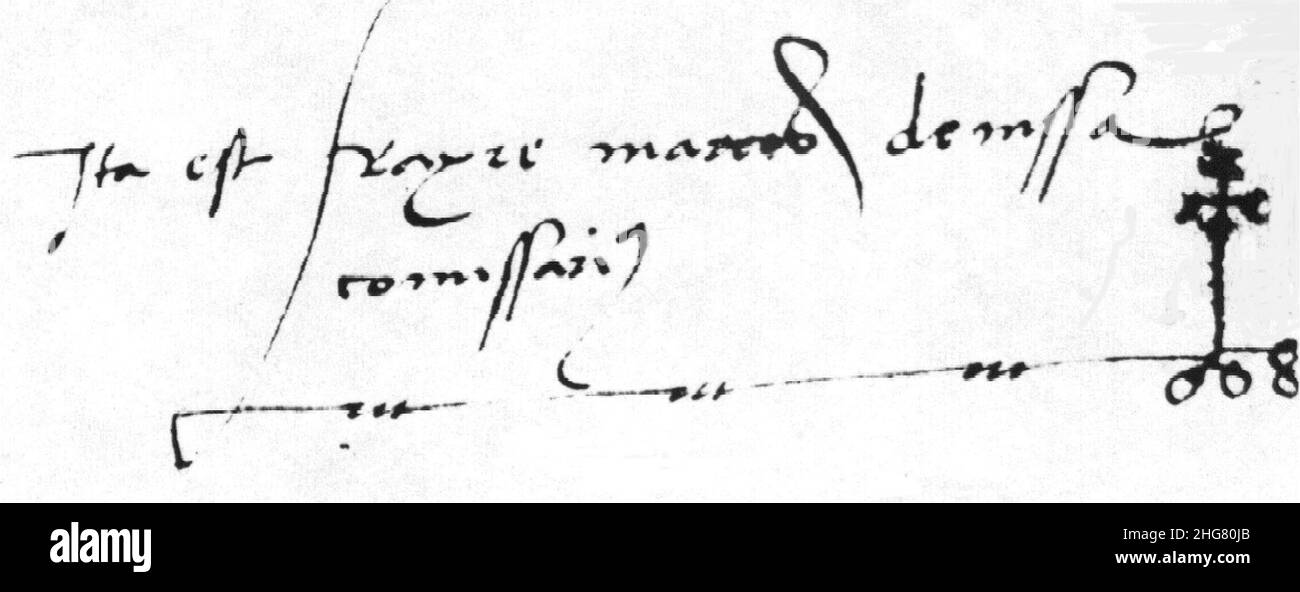 Ita est frayre marcos de nissa
comissari9
alamy
Image ID: 2HG80JB
www.alamy.com